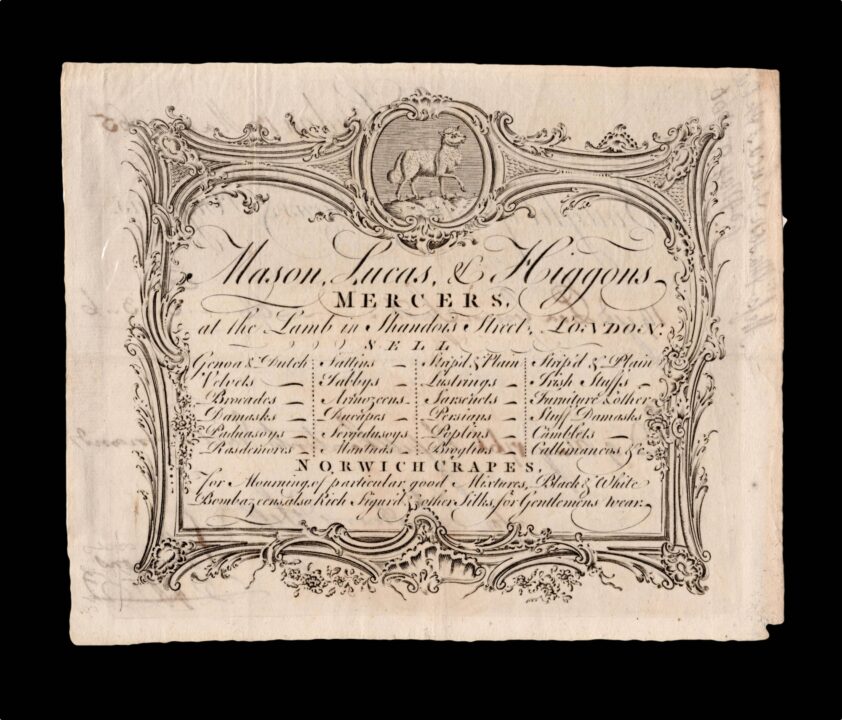 Mason, Lucas, & Higgons
MERCERS,
at the Lamb in Shandois Street, LONDON.
SELL
Genoa & Dutch Sattins Strip'd & Plain Strip'd & Plain
Velvets Tabbys Lustrings Irish Stuffs
Brocades Armozeens Sarsenets Furniture & other
Damasks Ducapes Persians Stuff Damasks
Paduasoys Sergedusoys Poplins Camblets
Rasdemores Mantuas Broglios Callimancos &c.
NORWICH CRAPES,
For Mourning, of particular good Mixtures, Black & White
Bombazeens, also Rich Figur'd & other Silks, for Gentlemens wear.